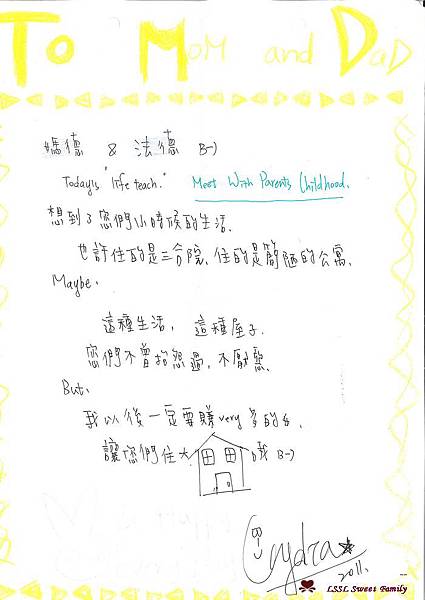 To Mom and Dad
媽德 & 法德 B-)
Today's "life teach." Meet With Parents Childhood.
想到了您們小時候的生活.
也許住的是三合院,住的是簡陋的公寓.
Maybe.
這種生活, 這種屋子.
您們不曾抱怨過,不厭煞.
But.
我以後一定要賺very多的$.
讓您們住大
B-)
2011.
LSSL Sweet Family